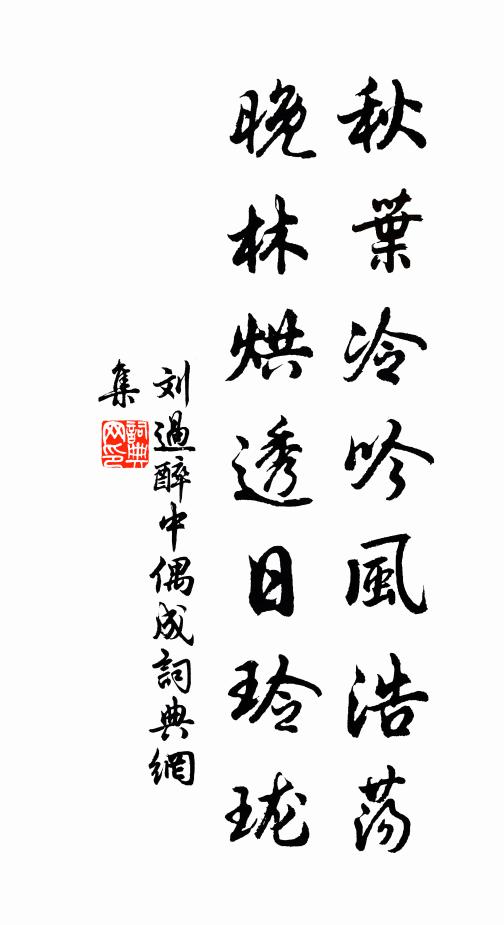 秋葉冷吟風浩荡
晚林烘透日玲珑
刘過醉中偶成詞典網
集
詞典网印